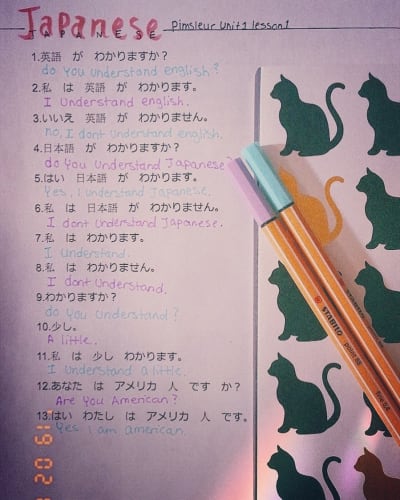 Japanese Pimsleur Unit 1 lesson 1
JAPANESE
1.英語 が わかりますか?
do you understand english?
2.私 は 英語 が わかります。
I understand english.
3.いいえ 英語 が わかりません。
no, I dont understand english.
4.日本語 が わかりますか?
do you understand Japanese?
5.はい 日本語 が わかります。
Yes, I understand Japanese.
6.私 は 日本語 が わかりません。
I dont understand Japanese.
7.私 は わかります。
I understand.
8.私 は わかりません。
I dont understand.
9.わかりますか?
do you understand?
10.少し。
A little.
11.私 は 少し わかります。
I understand a little.
12.あなた は アメリカ 人 です か?
Are you American?
13.はい わたし は アメリカ 人 です。
Yes I am american.
STABILO
point 88